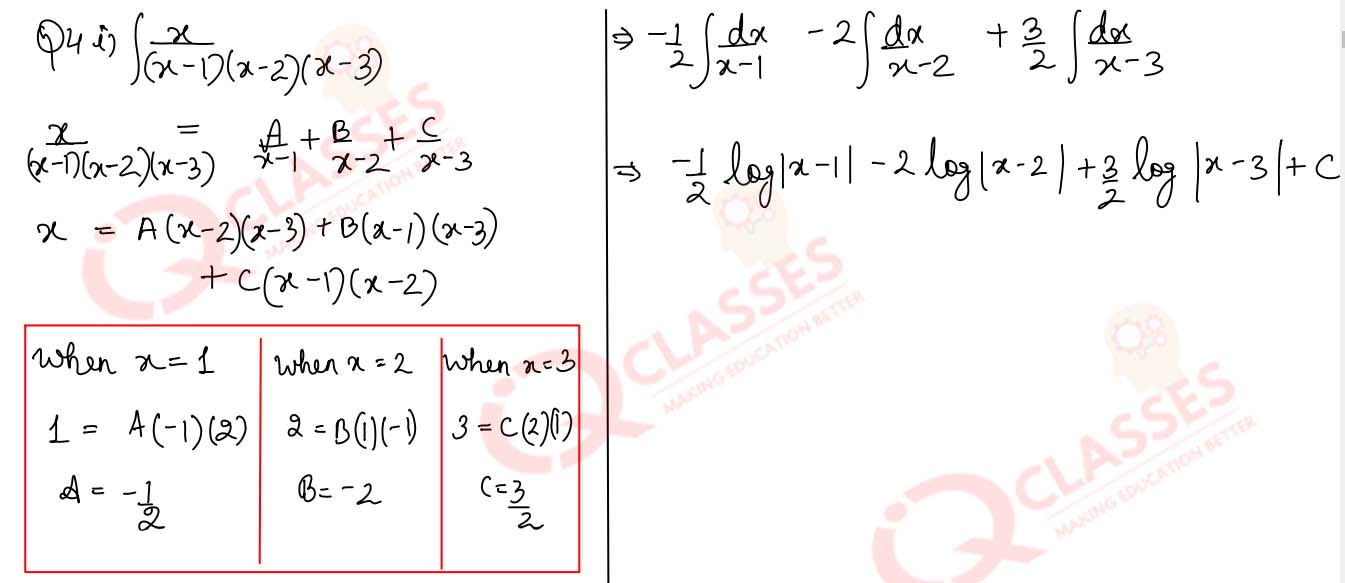 Q4 i) ∫ x/(x-1)(x-2)(x-3)
x/(x-1)(x-2)(x-3) = A/x-1 + B/x-2 + C/x-3
x = A(x-2)(x-3) + B(x-1)(x-3)
+ C(x-1)(x-2)
when x=1
1 = A(-1)(2)
A = -1/2
when x=2
2 = B(1)(-1)
B = -2
when x=3
3 = C(2)(1)
C = 3/2
⇒ -1/2 ∫ dx/x-1 - 2 ∫ dx/x-2 + 3/2 ∫ dx/x-3
⇒ -1/2 log|x-1| - 2 log|x-2| + 3/2 log|x-3| + C
CLASSES
MAKING EDUCATION BETTER
CLASSES
MAKING EDUCATION BETTER
CLASSES
MAKING EDUCATION BETTER